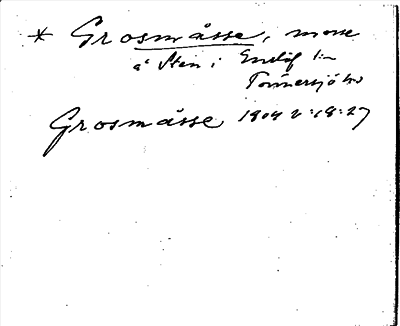 * Grosmåsse, mosse
å Sten i Enslöf sn
Tönnersjö hd
Grosmåsse 1804 2:18:27